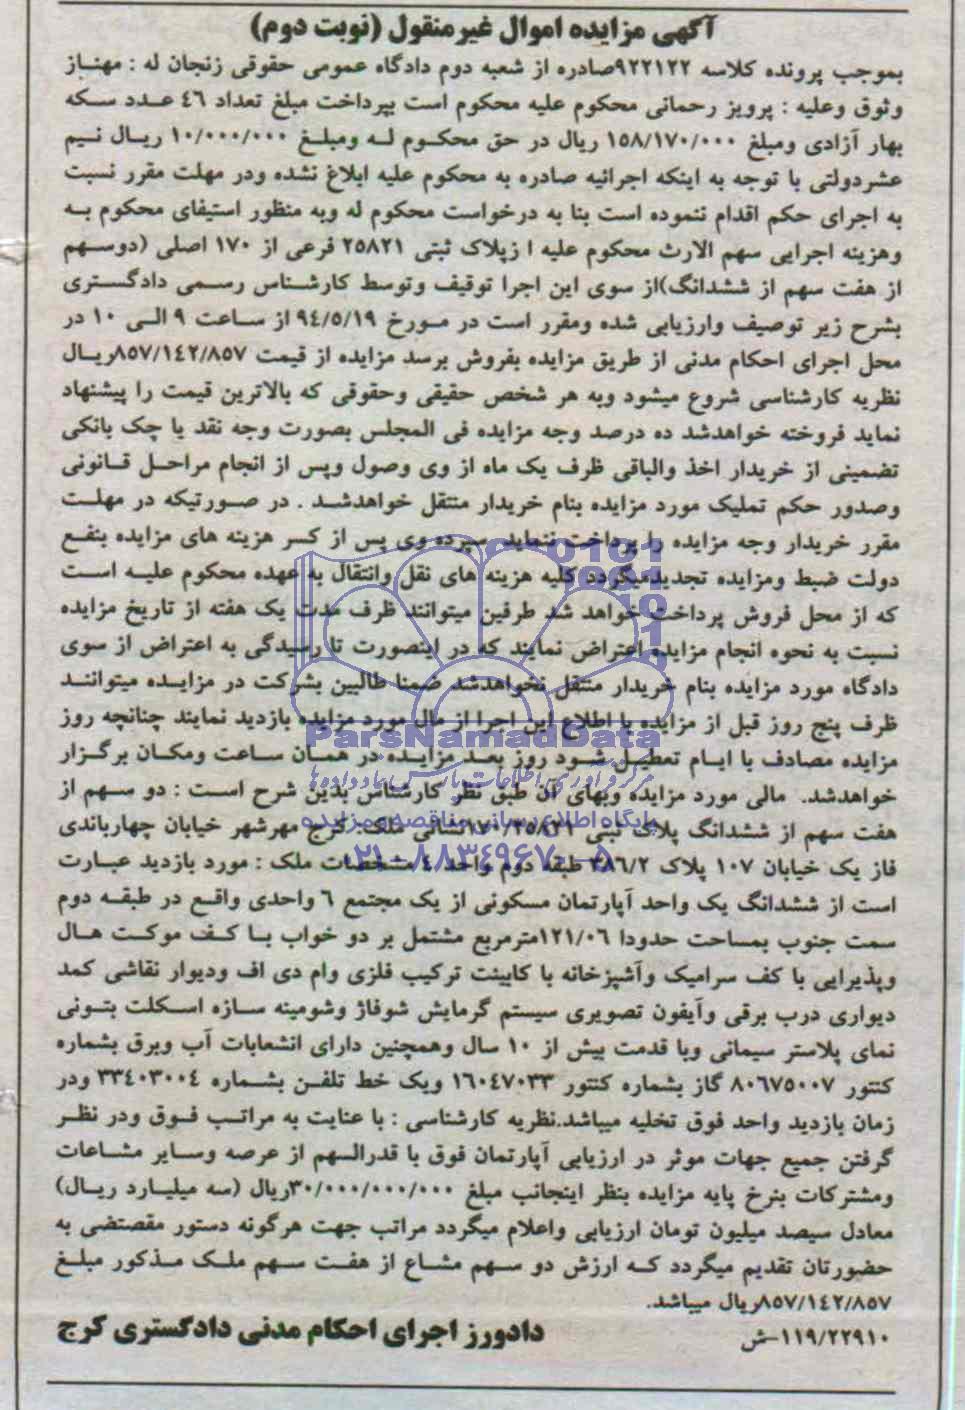 آگهی مزایده اموال غیرمنقول (نوبت دوم)
بموجب پرونده کلاسه ۹۲۲۱۲۲صادره از شعبه دوم دادگاه عمومی حقوقی زنجان له : مهناز
وثوق وعلیه : پرویز رحمانی محکوم علیه محکوم است بپرداخت مبلغ تعداد ٤٦ عدد سکه
بهار آزادی ومبلغ ۱٥۸/۱۷۰/۰۰۰ ریال در حق محکوم له ومبلغ ۱۰/۰۰۰/۰۰۰ ریال نیم
عشردولتی با توجه به اینکه اجرائیه صادره به محکوم علیه ابلاغ نشده ودر مهلت مقرر نسبت
به اجرای حکم اقدام ننموده است بنا به درخواست محکوم له وبه منظور استیفای محکوم به
وهزینه اجرایی سهم الارث محکوم علیه ا زپلاک ثبتی ۲٥۸۲۱ فرعی از ۱۷۰ اصلی (دوسهم
از هفت سهم از ششدانگ)از سوی این اجرا توقیف وتوسط کارشناس رسمی دادگستری
بشرح زیر توصیف وارزیابی شده ومقرر است در مورخ ۹٤/٥/۱۹ از ساعت ۹ الی ۱۰ در
محل اجرای احکام مدنی از طریق مزایده بفروش برسد مزایده از قیمت ۸٥۷/۱٤۲/۸٥۷ریال
نظریه کارشناسی شروع میشود وبه هر شخص حقیقی وحقوقی که بالاترین قیمت را پیشنهاد
نماید فروخته خواهدشد ده درصد وجه مزایده فی المجلس بصورت وجه نقد یا چک بانکی
تضمینی از خریدار اخذ والباقی ظرف یک ماه از وی وصول وپس از انجام مراحل قانونی
وصدور حکم تملیک مورد مزایده بنام خریدار منتقل خواهدشد . در صورتیکه در مهلت
مقرر خریدار وجه مزایده را پرداخت ننماید سپرده وی پس از کسر هزینه های مزایده بنفع
دولت ضبط ومزایده تجدیدمیگردد کلیه هزینه های نقل وانتقال به عهده محکوم علیه است
که از محل فروش پرداخت خواهد شد طرفین میتوانند ظرف مدت یک هفته از تاریخ مزایده
نسبت به نحوه انجام مزایده اعتراض نمایند که در اینصورت تا رسیدگی به اعتراض از سوی
دادگاه مورد مزایده بنام خریدار منتقل نخواهدشد ضمنا طالبین بشرکت در مزایده میتوانند
ظرف پنج روز قبل از مزایده با اطلاع این اجرا از مال مورد مزایده بازدید نمایند چنانچه روز
مزایده مصادف با ایام تعطیل شود روز بعد مزایده در همان ساعت ومکان برگزار
خواهدشد. مالی مورد مزایده وبهای آن طبق نظر کارشناس بدین شرح است : دو سهم از
هفت سهم از ششدانگ پلاک ثبتی ۱۷۰/۲٥۸۲۱نشانی ملک: کرج مهرشهر خیابان چهارباندی
فاز یک خیابان ۱۰۷ پلاک ۳۸٦/۲ طبقه دوم واحد ٤ مشخصات ملک : مورد بازدید عبارت
است از ششدانگ یک واحد آپارتمان مسکونی از یک مجتمع ٦ واحدی واقع در طبقه دوم
سمت جنوب بمساحت حدودا ۱۲۱/۰٦مترمربع مشتمل بر دو خواب با کف موکت هال
وپذیرایی با کف سرامیک وآشپزخانه با کابینت ترکیب فلزی وام دی اف ودیوار نقاشی کمد
دیواری درب برقی وآیفون تصویری سیستم گرمایش شوفاژ وشومینه سازه اسکلت بتونی
نمای پلاستر سیمانی وبا قدمت بیش از ۱۰ سال وهمچنین دارای انشعابات آب وبرق بشماره
کنتور ۸۰٦۷٥۰۰۷ گاز بشماره کنتور ۱٦۰٤۷۰۳۳ ویک خط تلفن بشماره ۳۳٤۰۳۰۰٤ ودر
زمان بازدید واحد فوق تخلیه میباشد.نظریه کارشناسی : با عنایت به مراتب فوق ودر نظر
گرفتن جمیع جهات موثر در ارزیابی آپارتمان فوق با قدرالسهم از عرصه وسایر مشاعات
ومشترکات بنرخ پایه مزایده بنظر اینجانب مبلغ ۳۰/۰۰۰/۰۰۰/۰۰۰ریال (سه میلیارد ریال)
معادل سیصد میلیون تومان ارزیابی واعلام میگردد مراتب جهت هرگونه دستور مقصتضی به
حضورتان تقدیم میگردد که ارزش دو سهم مشاع از هفت سهم ملک مذکور مبلغ
۸٥۷/۱٤۲/۸٥۷ریال میباشد.
۱۱۹/۲۲۹۱۰-ش
دادورز اجرای احکام مدنی دادگستری کرج
ParsNamadData
مرکز فرآوری اطلاعات پارس نماد داده ها
پایگاه اطلاع رسانی مناقصه و مزایده
۰۲۱-۸۸۳٤۹٦۷۰-۸